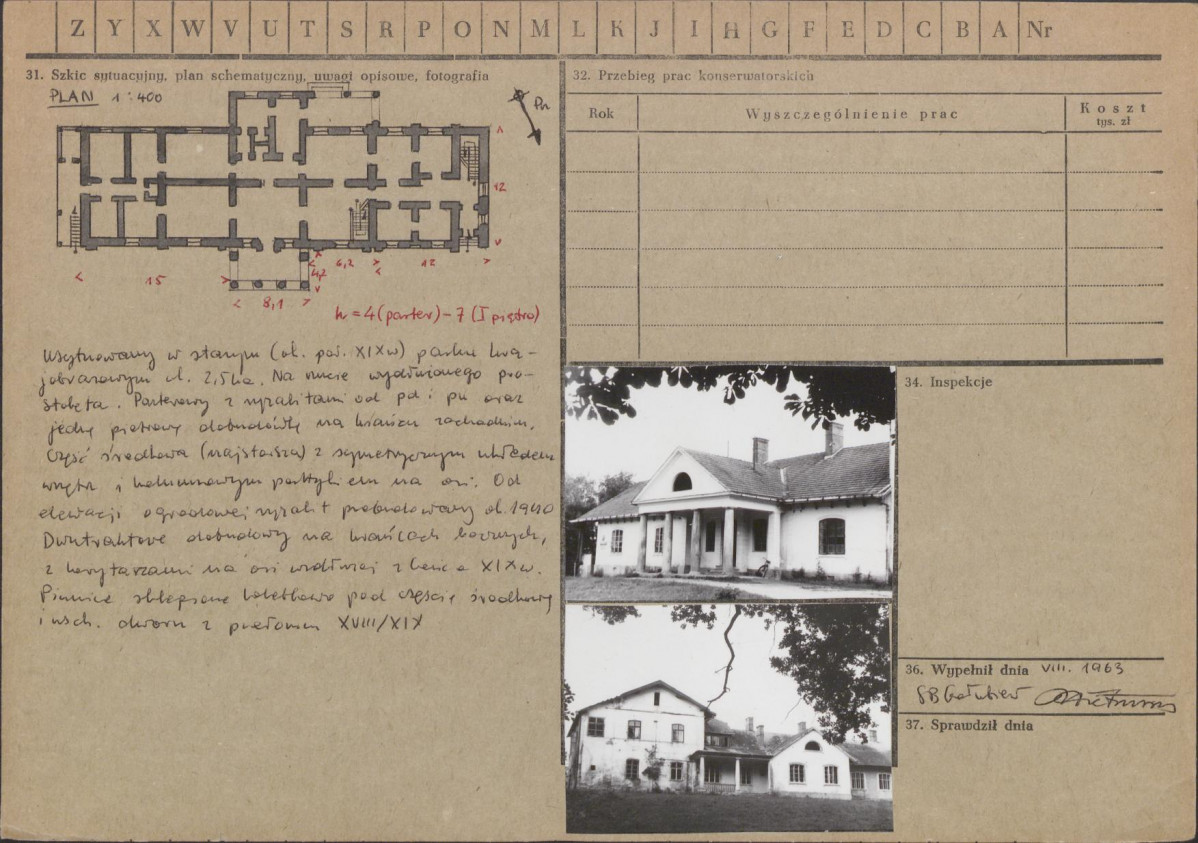 Z Y X W V U T S R P O N M L K J I H G F E D C B A Nr
31. Szkic sytuacyjny, plan schematyczny, uwagi opisowe, fotografia
PLAN 1:400
Pn
12
15
6,2
12
4,2
8,1
h = 4 (parter) – 7 (I piętro)
Usytuowany w starym (ok. poł. XIX w) parku kra-
jobrazowym ok. 2,5 ha. Na rzucie wydłużonego pro-
stokąta. Parterowy z ryzalitami od pd i pn oraz
jedną piętrową dobudówką na krańcu zachodnim.
Część środkowa (najstarsza) z symetrycznym układem
wnętrz i kolumnowym portykiem na osi. Od
elewacji ogrodowej ryzalit przebudowany ok. 1940
Dwutraktowe dobudowy na krańcach bocznych,
z korytarzami na osi wzdłużnej z końca XIX w.
Piwnice sklepione kolebkowo pod częścią środkową
i wsch. dworu z przełomu XVIII/XIX
32. Przebieg prac konserwatorskich
Rok Wyszczególnienie prac Koszt
tys. zł
34. Inspekcje
36. Wypełnił dnia VIII. 1963
37. Sprawdził dnia